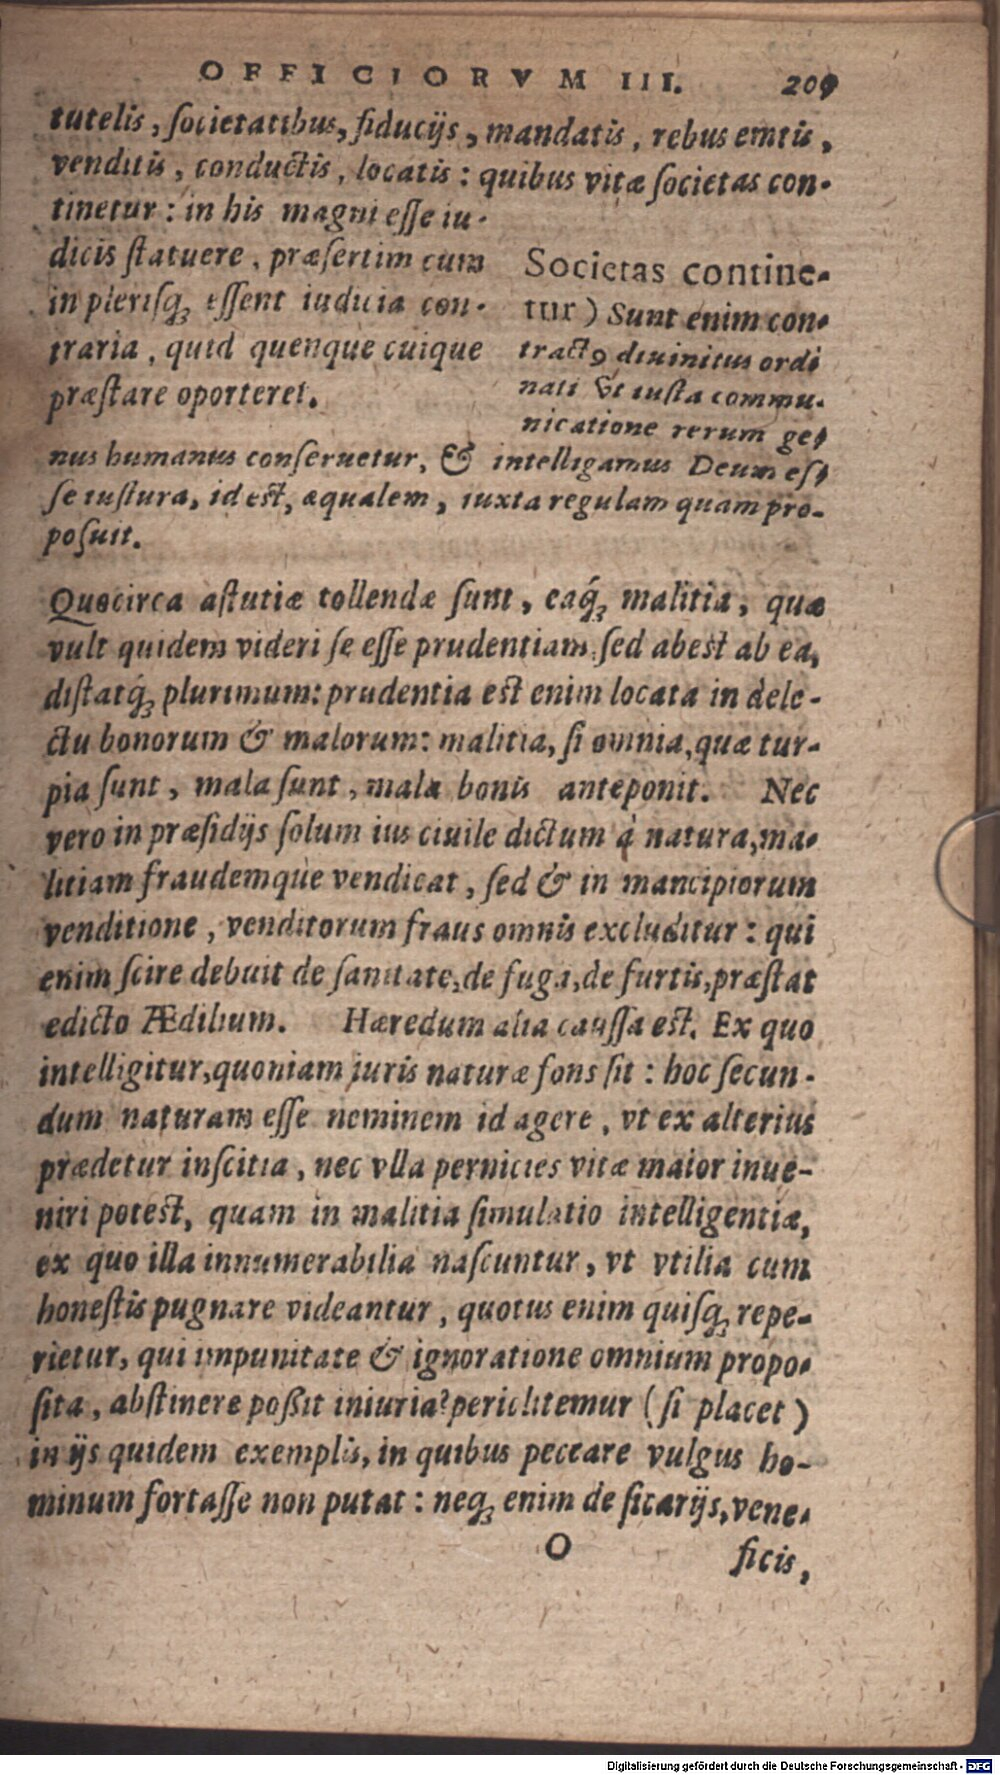 OFFICIORVM III. 209
tutelis, ſocietatibus, fiducijs, mandatis, rebus emtis,
venditis, conductis, locatis: quibus vitæ ſocietas con-
tinetur: in his magni eſſe iu-
dicis ſtatuere, præſertim cum
in pleriſq; eſſent iudicia con-
traria, quid quenque cuique
præſtare oporteret.
Societas contine-
tur) Sunt enim con-
tractꝰ diuinitus ordi
nati vt iuſta commu-
nicatione rerum ge-
nus humanus conſeruetur, & intelligamus Deum eſ-
ſe iuſtura, id est, æqualem, iuxta regulam quam pro-
poſuit.
Quocirca aſtutiæ tollendæ ſunt, eaq́; malitia, quæ
vult quidem videri ſe eſſe prudentiam, ſed abest ab ea,
diſtatq́; plurimum: prudentia est enim locata in dele-
ctu bonorum & malorum: malitia, ſi omnia, quæ tur-
pia ſunt, mala ſunt, mala bonis anteponit. Nec
vero in præſidijs ſolum ius ciuile dictum à natura, ma-
litiam fraudemque vendicat, ſed & in mancipiorum
venditione, venditorum fraus omnis excluditur: qui
enim ſcire debuit de ſanitate, de fuga, de furtis, præſtat
edicto Ædilium. Hæredum alia cauſſa est. Ex quo
intelligitur, quoniam juris naturæ fons ſit: hoc ſecun-
dum naturam eſſe neminem id agere, vt ex alterius
prædetur inſcitia, nec vlla pernicies vitæ maior inue-
niri potest, quam in malitia ſimulatio intelligentiæ,
ex quo illa innumerabilia naſcuntur, vt vtilia cum
honeſtis pugnare videantur, quotus enim quiſq; repe-
rietur, qui impunitate & ignoratione omnium propo-
ſita, abſtinere poßit iniuria? periclitemur (ſi placet)
in ijs quidem exemplis, in quibus peccare vulgus ho-
minum fortaſſe non putat: neq; enim de ſicarijs, vene-
O ficis,
Digitalisierung gefördert durch die Deutsche Forschungsgemeinschaft - DFG